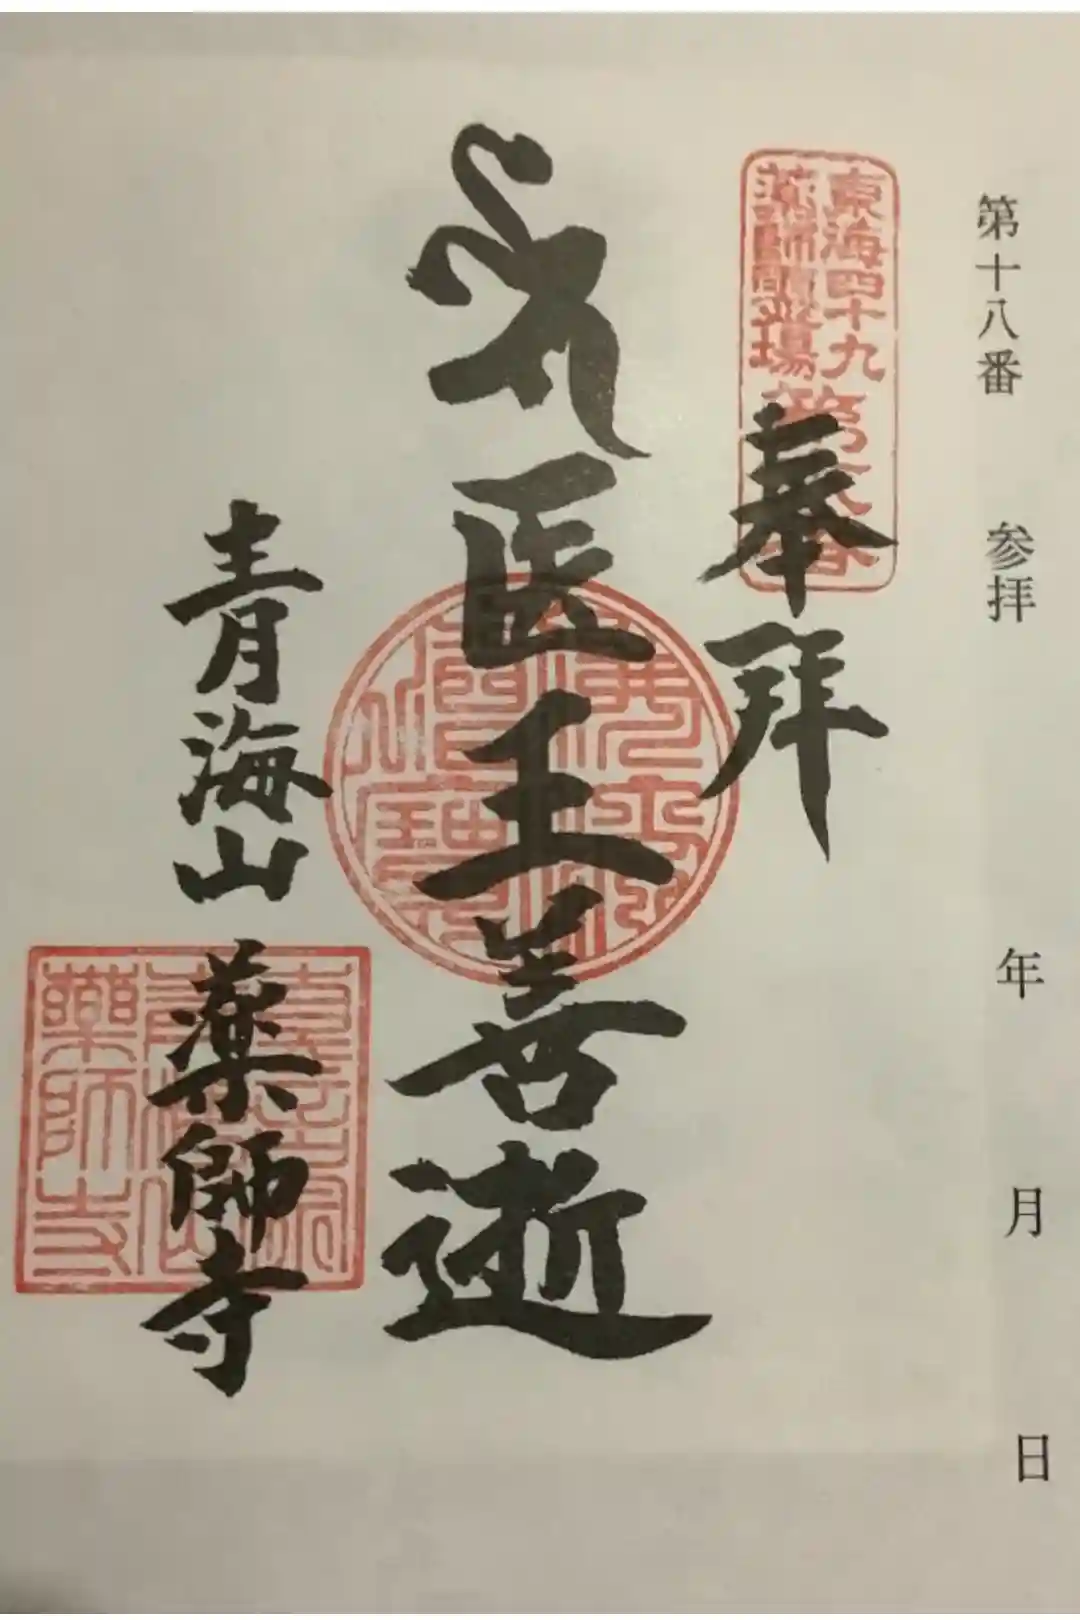 第十八番　参拝　年　月　日
東海四十九
薬師霊場
第十八番
奉拝
医王善逝
青海山　薬師寺
青海山
薬師寺